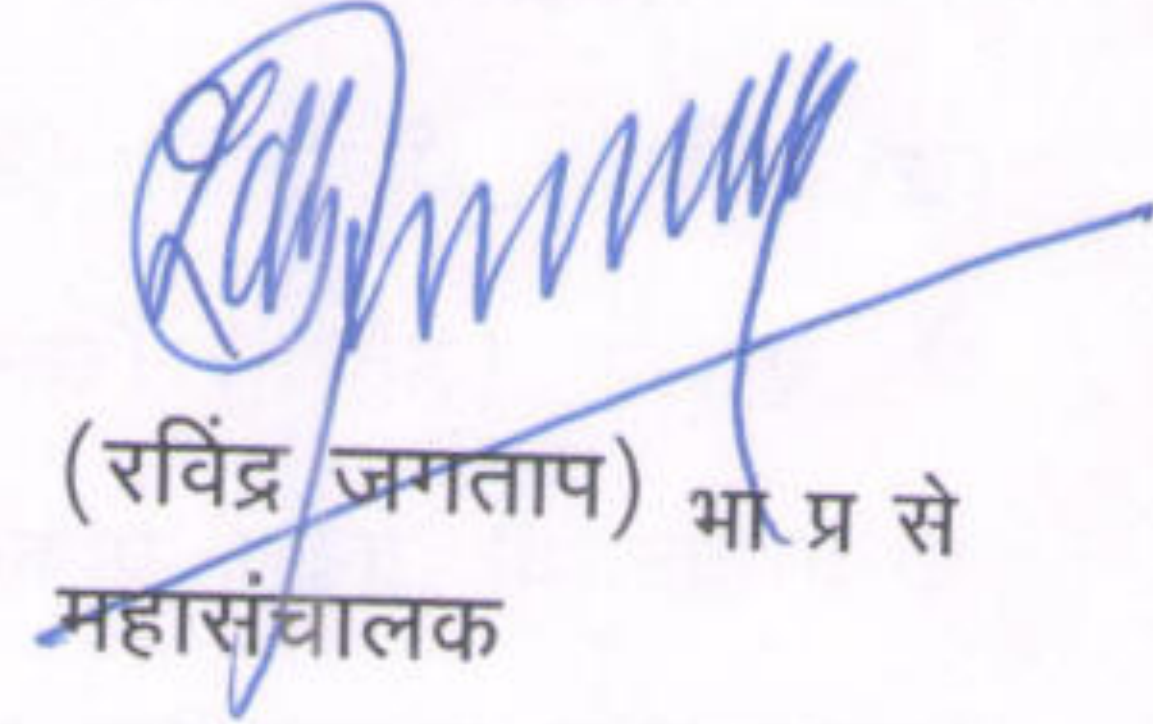 (रविंद्र जगताप) भा प्र से
महासंचालक